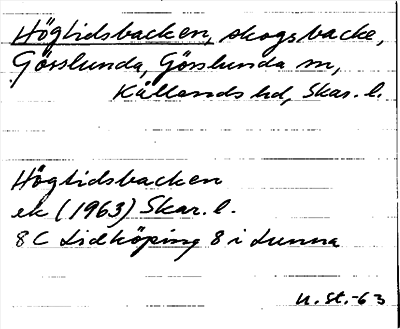 Högtidsbacken, skogsbacke,
Gösslunda, Gösslunda sn,
Kållands hd, Skar. l.
Högtidsbacken
ek (1963) Skar. l.
8C Lidköping 8 i Lunna
n. St.-63